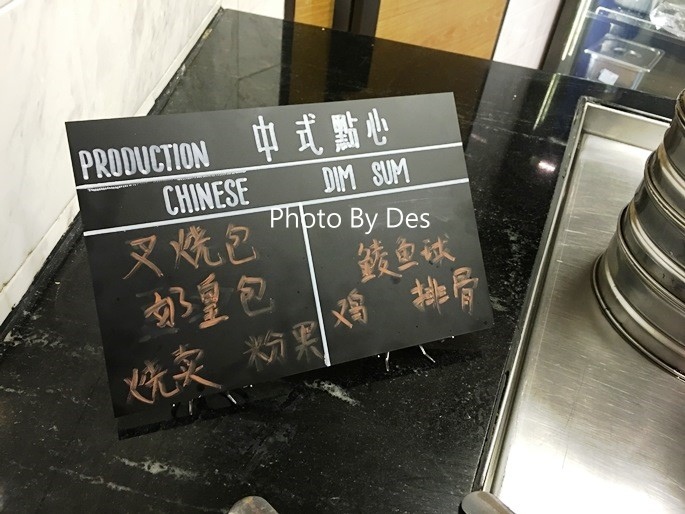 PRODUCTION 中式點心
CHINESE DIM SUM
Photo By Des
叉烧包
奶皇包
烧卖 粉果
鲮鱼球
鸡 排骨